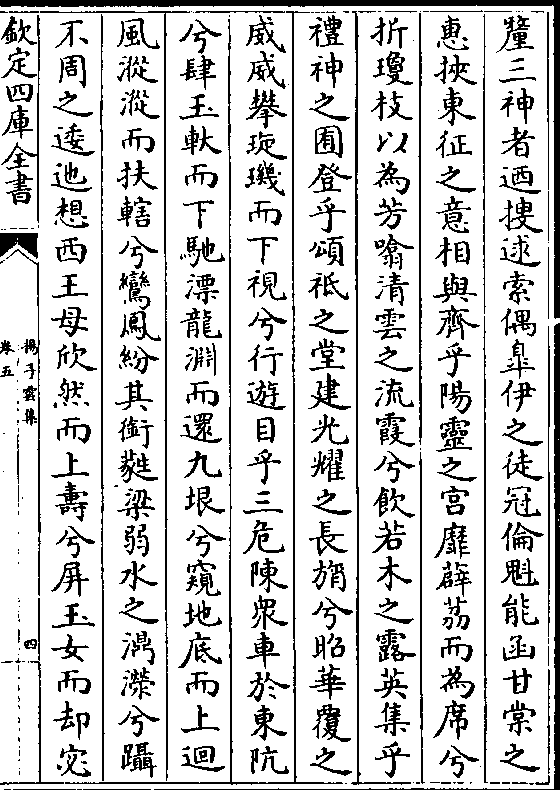 釐三神者迺搜逑索偶臯伊之徒冠倫魁能函甘棠之
惠挾東征之意相與齊乎陽靈之宫靡薜荔而為席兮
折瓊枝以為芳噏清雲之流霞兮飲若木之露英集乎
禮神之囿登乎頌祗之堂建光耀之長旓兮昭華覆之
威威攀琁璣而下視兮行遊目乎三危陳衆車於東阬
兮肆玉軑而下馳漂龍淵而還九垠兮窺地底而上迴
風漎漎而扶轄兮鸞鳳紛其銜蕤梁弱水之濎濴兮躡
不周之逶迤想西王母欣然而上壽兮屏玉女而却宓
欽定四庫全書
揚子雲集
卷五
四